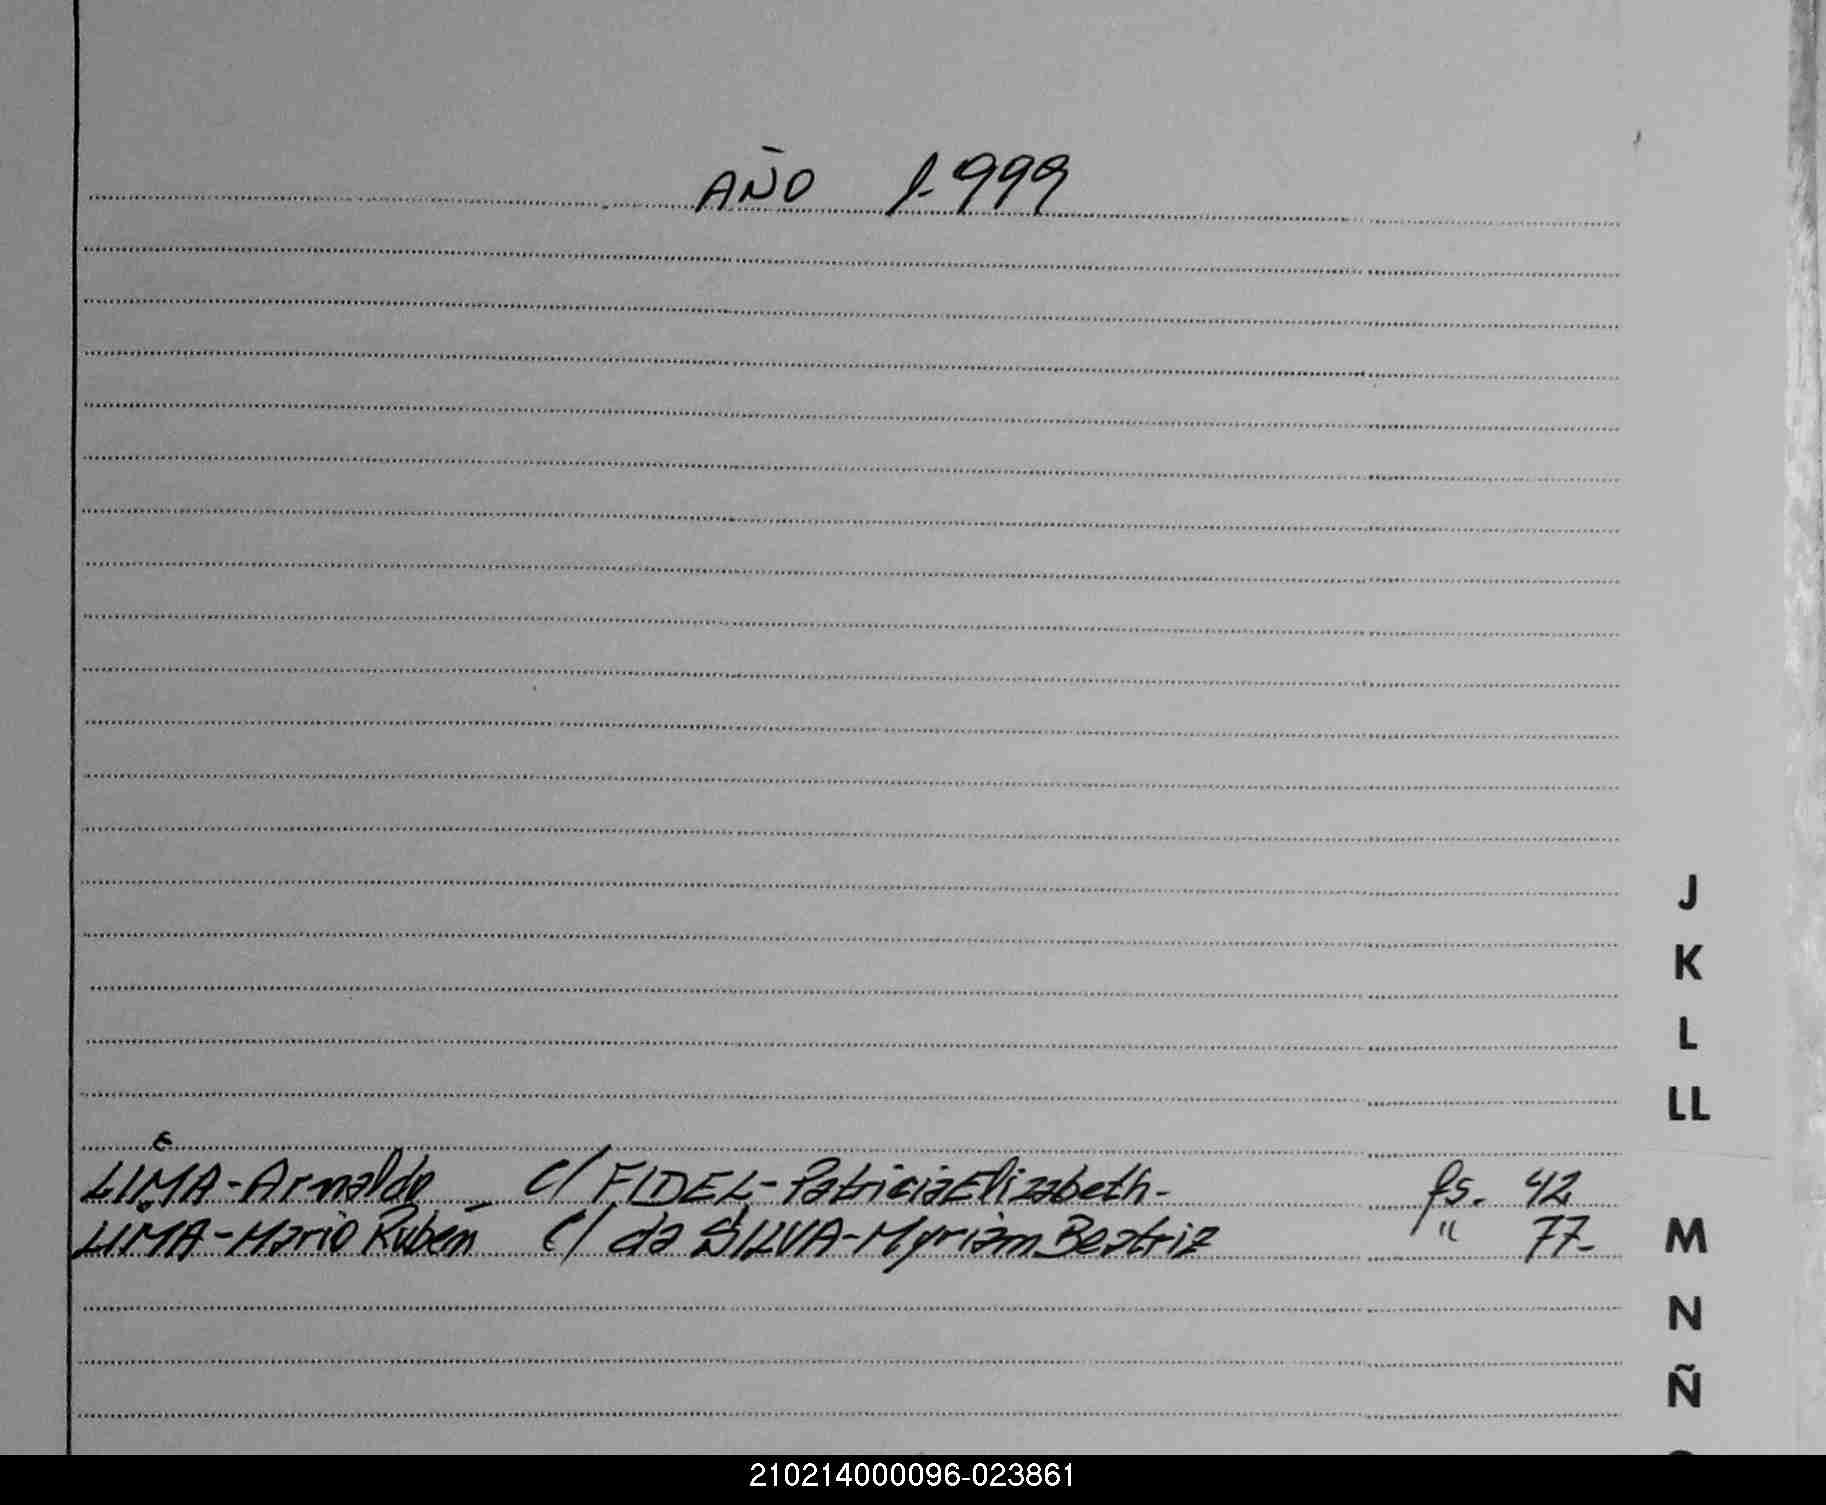 AÑO 1.999
J
K
L
LL
LIMA-Arnaldo c/ FIDEL-Patricia Elizabeth- fs. 42
LIMA-Mario Rubén c/ da SILVA-Myriam Beatriz " 77-
M
N
Ñ
210214000096-023861